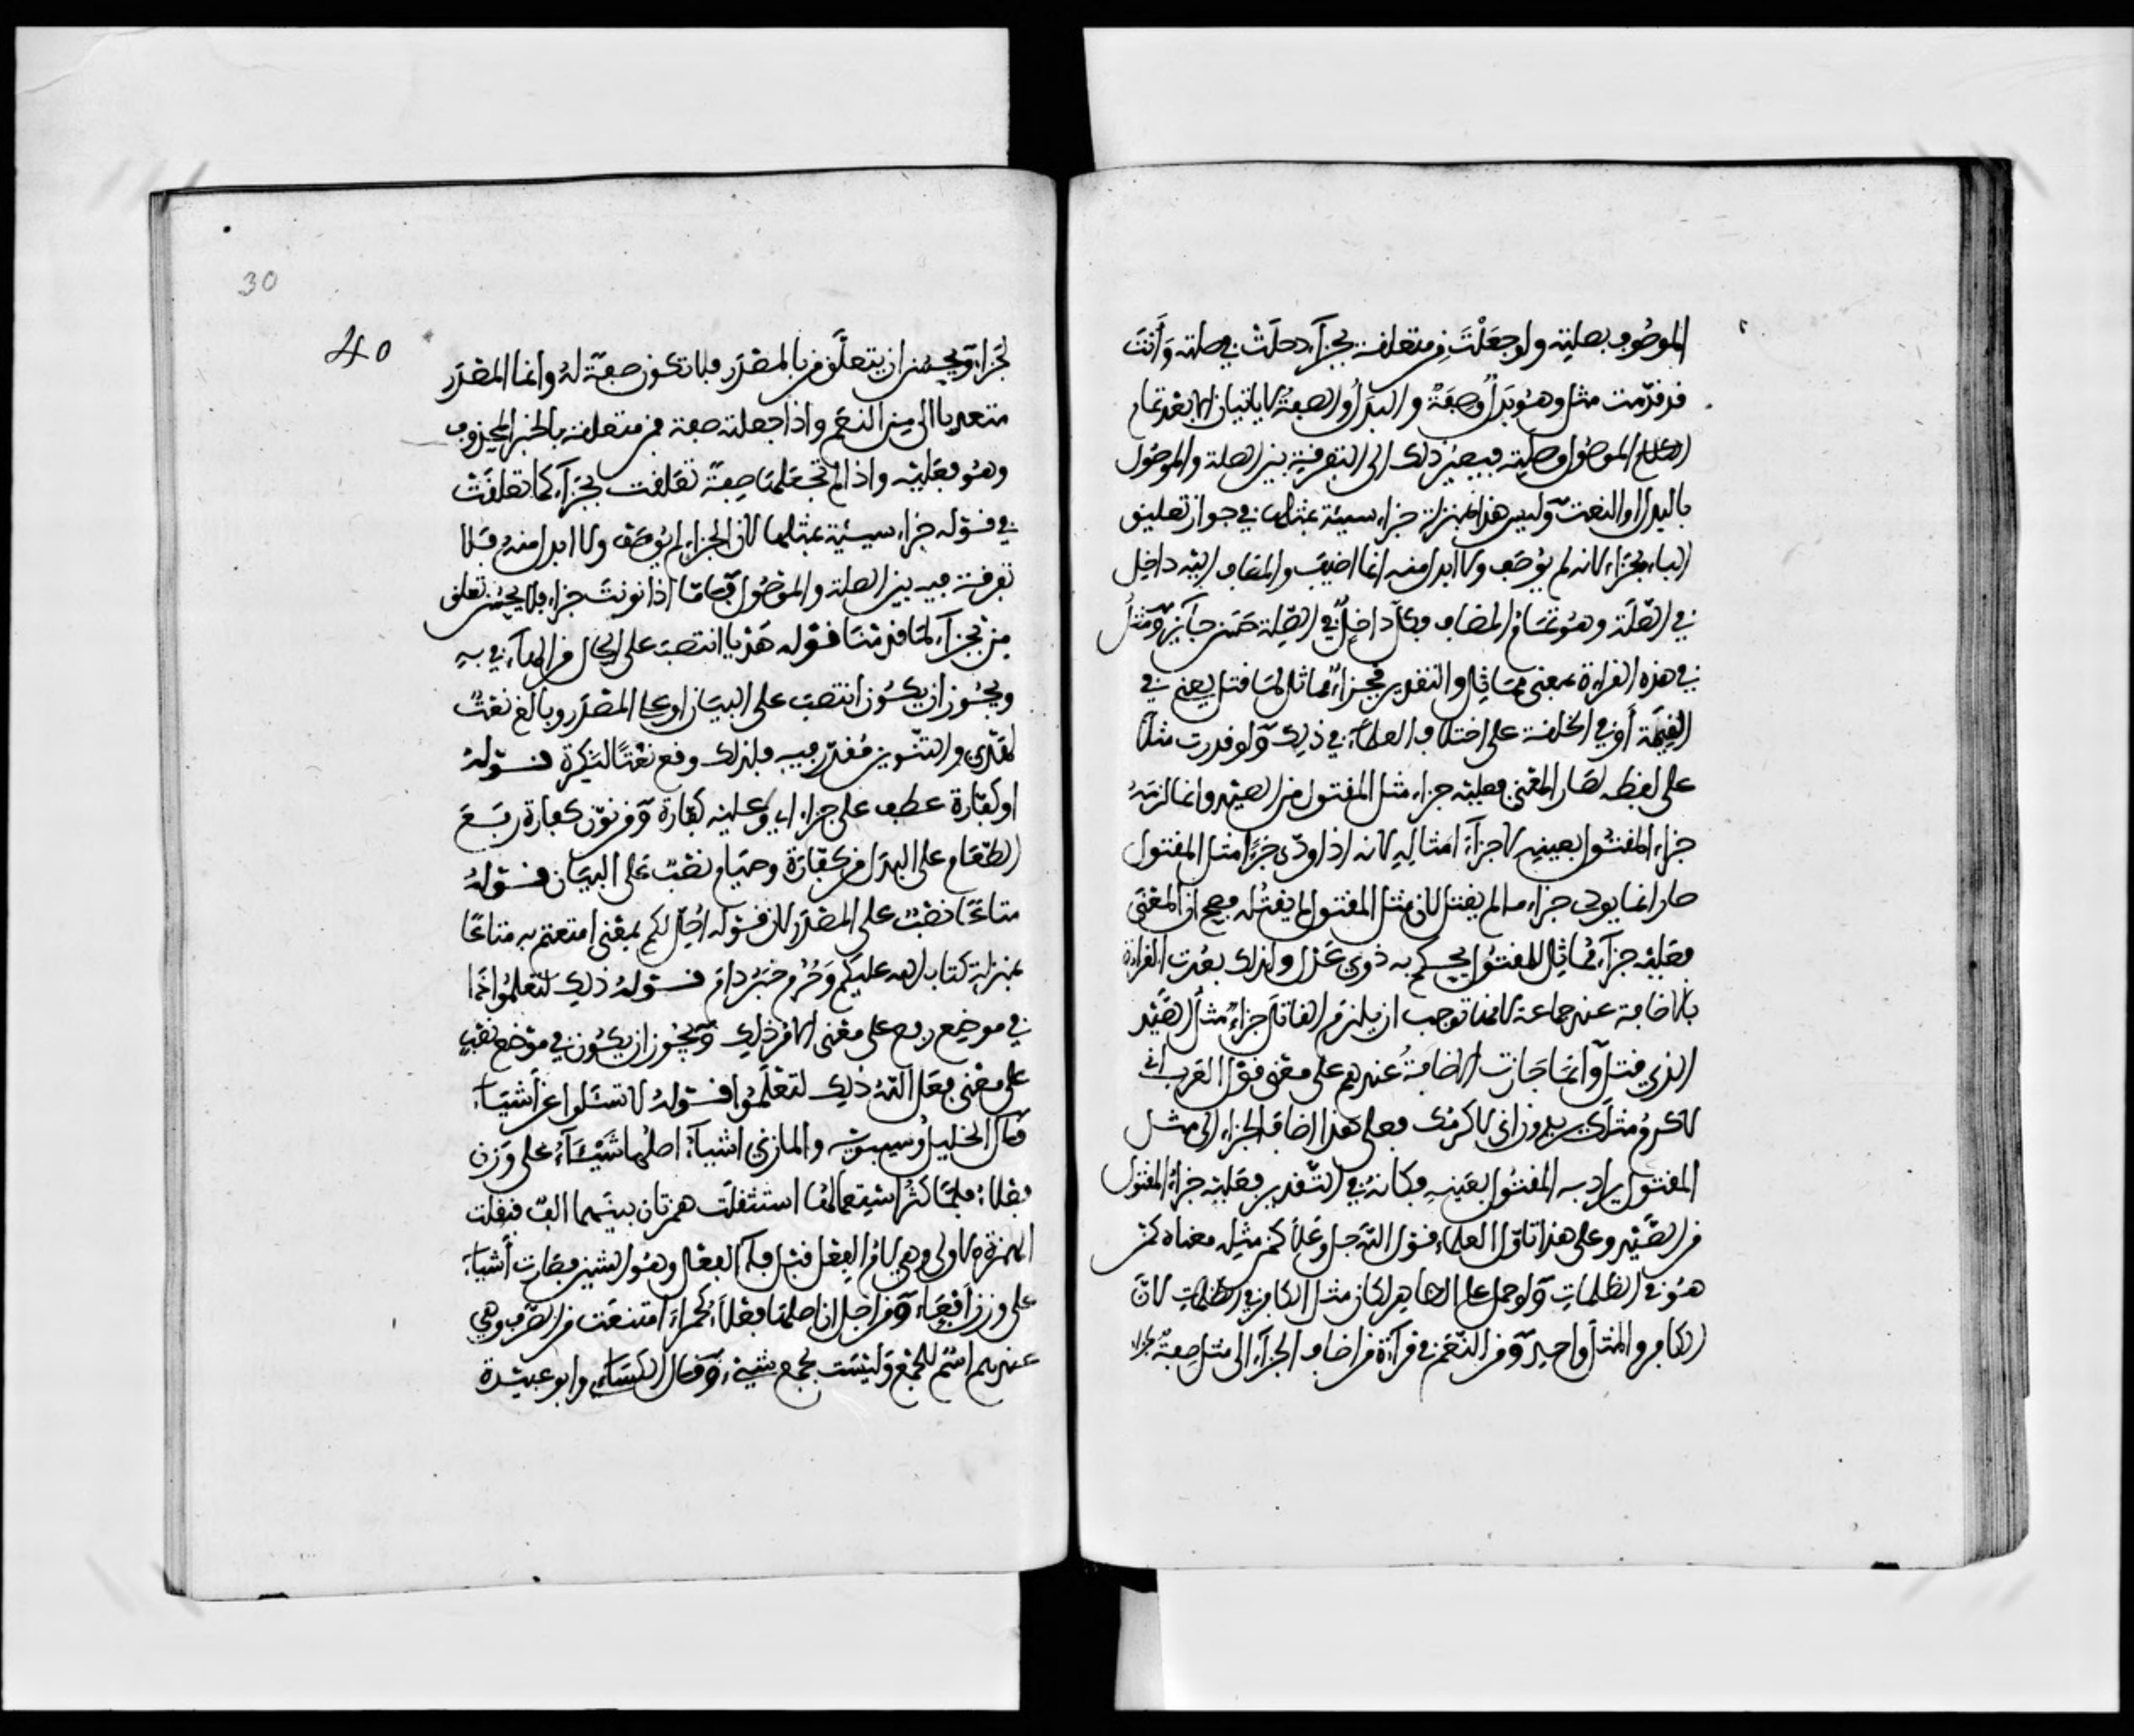 الموصوف بصلته ولو جَعَلْتَ من متعلقة بجزآء دخلَتْ في صلته وَأَنتَ
قد قدّمت مثل وهو بَدَلٌ أوصِفَةٌ والبدَلُ والصفةُ لا ياتيان إلا بعْد تمام
الموصُول وصلته فيصير ذلك الى التفرقة بين الصلة والموصُول
بالبدل او النعت وليس هذا بمنزلة جزاء سيئة بمثلها في جواز تعليق
الباء بجزاء لانه لم يُوصَف ولا ابدل منه انما اضيف والمضاف اليْه داخِل
في الصّلَة وهُو تمَام المضاف فكلٌّ داخِلٌ في الصِّلة حَسَن جآئز ومِثْلُ
في هذه القراءة بمعنى مُمَاثِل والتقدير فجزاءٌ مماثل لمَا قتل يعني في
القِيمَة أو في الخلقة على اختلاف العلمآء في ذلك ولو قدرت مثلًا
على لفظه لصَار المعْنى فعليْه جزاء مثل المقتول من الصّيْد وانما لزمَهُ
جزاء المقتُول بعينِه لا جزآء امثالِه لانه اذا ودّى جَزآء مثل المقتول
صار انما يودى جزاء ما لم يقتل لان مثل المقتول لم يقتُله فصح ان المعْنَى
فعَليْه جزآءٌ مُماثِلٌ للمقتُول يحكم به ذوى عَدْل ولذلك بعُدت القراءة
بالاضافة عند جماعة لانها توجب ان يلزم القاتل جزاءُ مثل الصَّيْد
الذي قتل وانمَا جَازت الاضافةُ عندهم على معنى قوْل العَرب اني
لاكرمُ مثلك يريدون اني لاكرمُك فعلى هذا اضاف الجزاء الى مثل
المقتول يراد به المقتُول بعَينِه فكانهُ في التّقدير فعَليْه جزاءُ المقتول
من الصَّيْد وعلى هذا تاوّل العلماء قوْل اللّه جل وعَلا كمن مثِله معناه كمن
هوَ في الظلماتِ ولو حمل على الظاهر لكان مثل الكافر في الظلماتِ لانّ
الكافر والمثل واحد ومن النّعَم في قرآءَة من اضاف الجزآء الى مثل صفة
لجَزاء ويحسُن ان يتعلّق من بالمصْدَر فلا تكون صفة لهُ وانما المصْدَر
متعديا الى من النعَم واذا جعلته صفة فمن متعلقة بالخبر المحذوف
وهُو فعَليْه واذا لم تجعَلهَا صِفةً تعَلقت بجَزآء كما تعَلقَتْ
في قوْله جزاء سيئة بمثلها لان الجزاء لم يُوصَف ولا ابدل منهُ فلا
تفرقة فيه بين الصلة والموْصُول فامّا اذا نونتَ جزاء فلا يحسُن تعلق
من بجزآء لمَا قدمْنَا قوْله هَدْيا انتصبَ على الحَال من الهآء في بِه
ويجُوز ان يكُون انتصبَ على البيَان او على المصْدَر وبالغَ نعْتٌ
لهَدْي والتنْوين مُقدّر فيه فلذلك وقع نعْتًا لنكِرة قوْلهُ
او كفّارة عطف على جزاء اي او عليْه كفّارة ومن نوّن كفارة رفَعَ
الطعَام على البدَل من كفارَة وصيَام نصْبٌ عَلى البيَان قوْلهُ
متاعًا نصْبٌ على المصْدَر لان قوْله احِلّ لكم بمعْنى امتعتم به متاعًا
بمنزلة كتاب الله عليكم وَحُرُم خبَرُ دام قوْلهُ ذلِك لتعْلمُوا انما
في موضِع رفع على معْنى الامر ذلِك ويجُوز ان يكُون في موْضِع نصْب
على معْنى فعَل اللّهُ ذلِك لتعْلَمُوا قوْلهُ لا تسْئلوا عن أشيَاء
قال الخليل وسيبويه والمازني اشيَآءُ اصلها شَيْئَآءُ على وَزْن
فعْلاء فلمّا كثر استعمالها استثقلت همزتان بينهما الفٌ فنقلت
الهمزة الاولى وهي لام الفِعْل قبْل فآء الفعْل وهُو الشين فصَارت أشياء
على وزن لَفعَاء ومن اجل ان اصلهَا فعْلاء كحمْراء امتنعَت من الصّرف وهي
عندهم اسْم للجمْع وَليْسَت بجمْع شيْء وَقال الكسَاءِي وابو عبيْدة
30
40